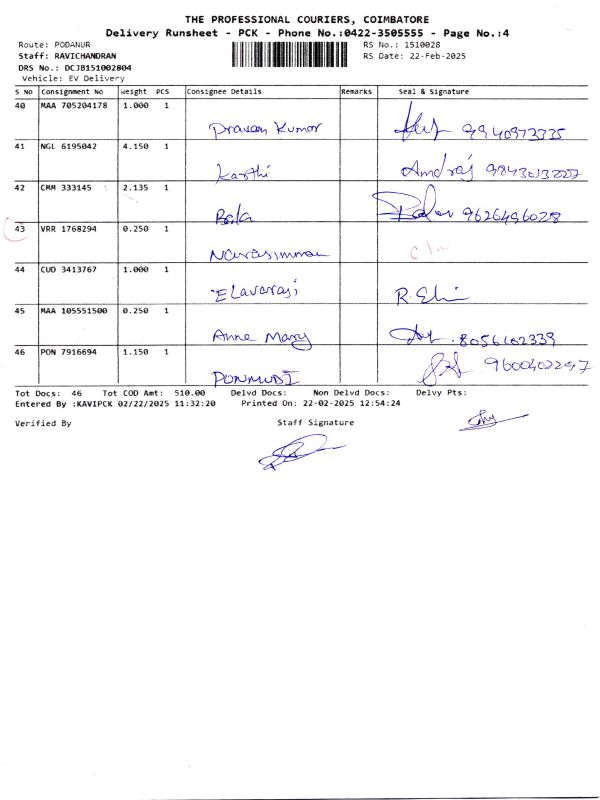 THE PROFESSIONAL COURIERS, COIMBATORE
Delivery Runsheet - PCK - Phone No.:0422-3505555 - Page No.:4
Route: PODANUR
RS No.: 1510028
Staff: RAVICHANDRAN
RS Date: 22-Feb-2025
DRS No.: DCJB151002804
Vehicle: EV Delivery
S No Consignment No Weight PCS Consignee Details Remarks Seal & Signature
40 MAA 705204178 1.000 1
Pravan Kumar 9940973335
41 NGL 6195042 4.150 1
Karthi Amdraj 9843013227
42 CMM 333145 2.135 1
Bala 9626496028
43 VRR 1768294 0.250 1
Narasimman
44 CUD 3413767 1.000 1
Elavarasi R.Eli
45 MAA 105551500 0.250 1
Anne Mary 8056102339
46 PON 7916694 1.150 1
PONMUDI 9600402297
Tot Docs: 46 Tot COD Amt: 510.00 Delvd Docs: Non Delvd Docs: Delvy Pts:
Entered By :KAVIPCK 02/22/2025 11:32:20 Printed On: 22-02-2025 12:54:24
Verified By Staff Signature